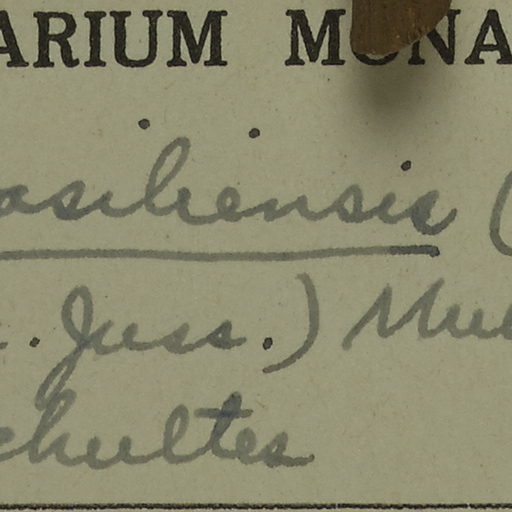 ARIUM MONA
asiliensis (
. Juss.) Muel
chultes